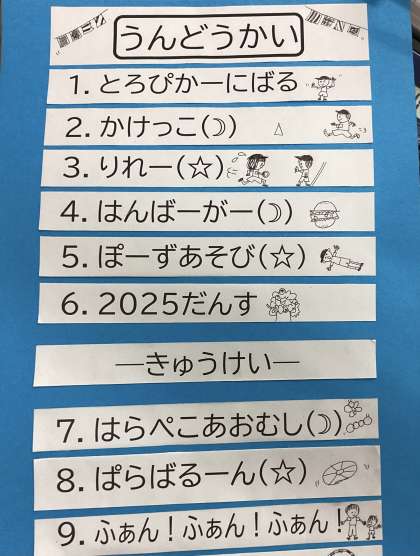 うんどうかい
1. とろぴかーにばる
2. かけっこ(☽)
3. りれー(☆)
4. はんばーがー(☽)
5. ぽーずあそび(☆)
6. 2025だんす
—きゅうけい—
7. はらぺこあおむし(☽)
8. ぱらばるーん(☆)
9. ふぁん！ふぁん！ふぁん！